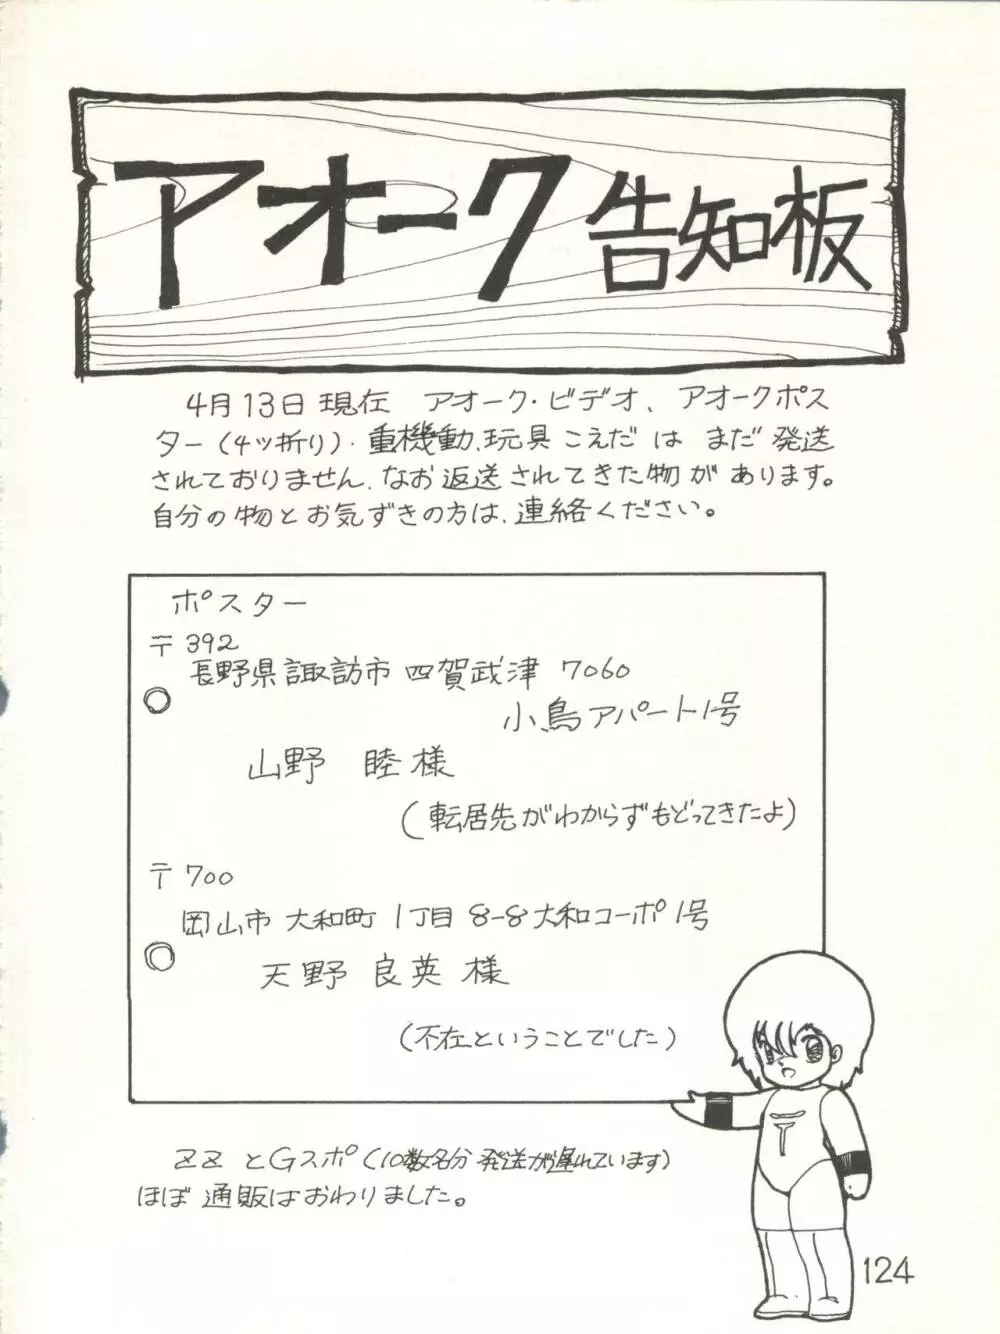 アオーク告知板
4月13日現在 アオーク・ビデオ、アオークポス
ター(4ッ折り)・重機動、玩具こえだは まだ発送
されておりません、なお返送されてきた物があります。
自分の物とお気ずきの方は、連絡ください。
ポスター
〒392
長野県諏訪市四賀武津 7060
小鳥アパート1号
山野 睦様
(転居先がわからずもどってきたよ)
〒700
岡山市 大和町 1丁目 8-8大和コーポ1号
天野良英様
(不在ということでした)
ZZとGスポ(10数名分発送が遅れています)
ほぼ通販はおわりました。
〒
124